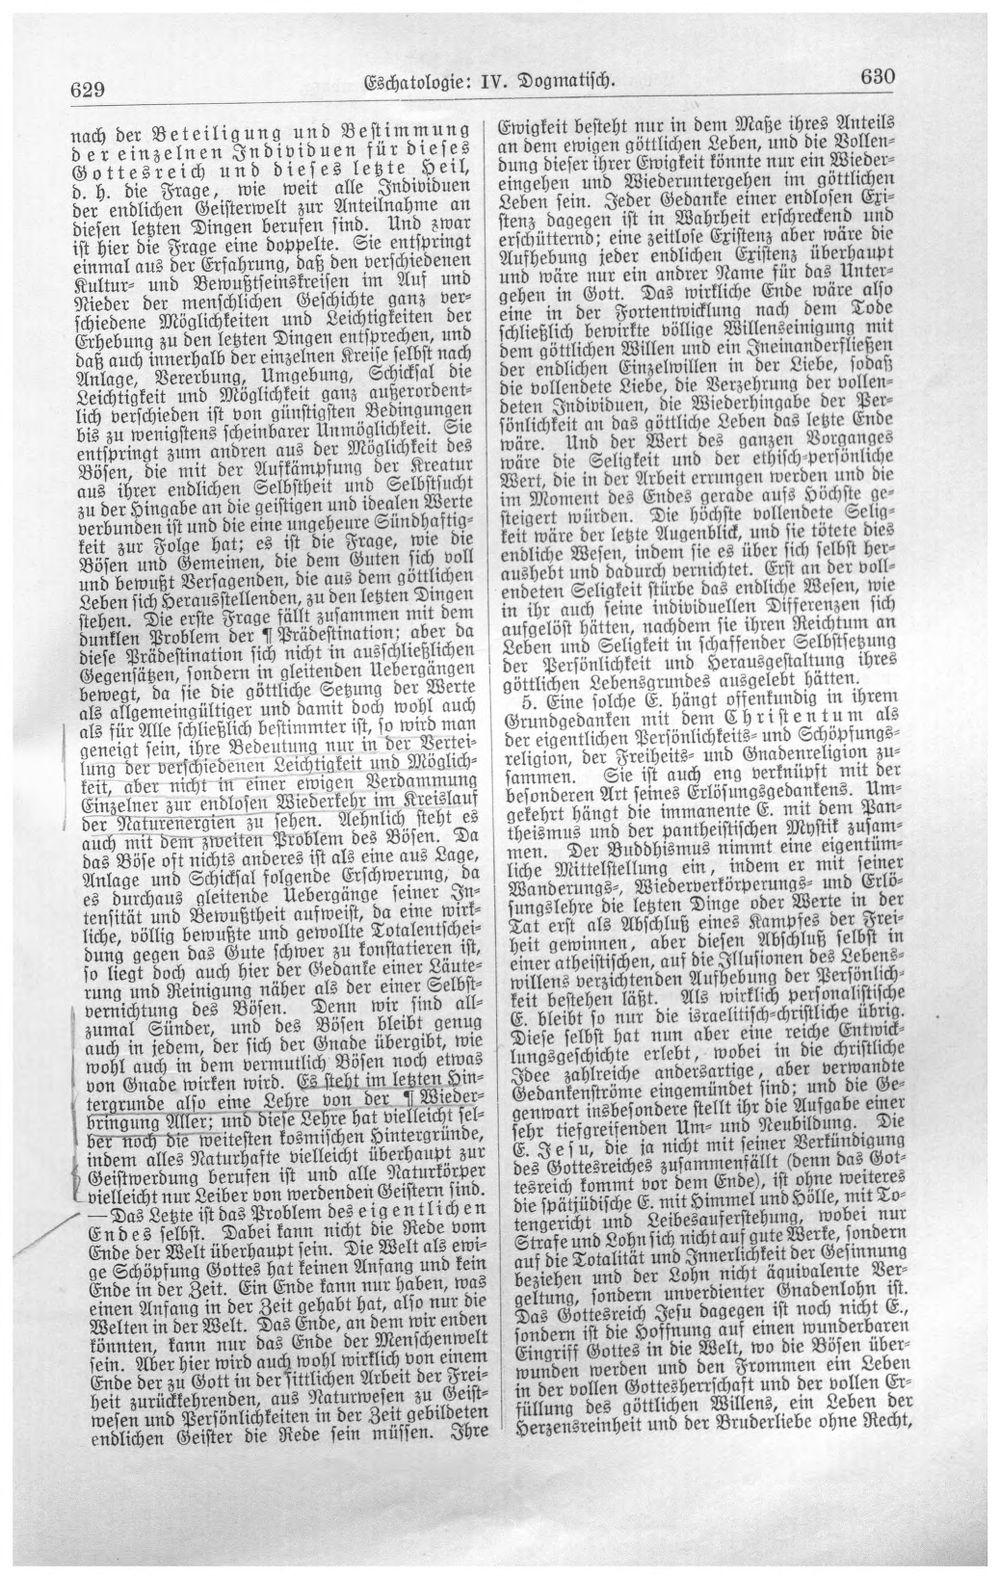 629
Eschatologie: IV. Dogmatisch.
630
nach der Beteiligung und Bestimmung
der einzelnen Individuen für dieses
Gottesreich und dieses letzte Heil,
d. h. die Frage, wie weit alle Individuen
der endlichen Geisterwelt zur Anteilnahme an
diesen letzten Dingen berufen sind. Und zwar
ist hier die Frage eine doppelte. Sie entspringt
einmal aus der Erfahrung, daß den verschiedenen
Kultur- und Bewußtseinskreisen im Auf und
Nieder der menschlichen Geschichte ganz ver-
schiedene Möglichkeiten und Leichtigkeiten der
Erhebung zu den letzten Dingen entsprechen, und
daß auch innerhalb der einzelnen Kreise selbst nach
Anlage, Vererbung, Umgebung, Schicksal die
Leichtigkeit und Möglichkeit ganz außerordent-
lich verschieden ist von günstigsten Bedingungen
bis zu wenigstens scheinbarer Unmöglichkeit. Sie
entspringt zum andren aus der Möglichkeit des
Bösen, die mit der Aufkämpfung der Kreatur
aus ihrer endlichen Selbstheit und Selbstsucht
zu der Hingabe an die geistigen und idealen Werte
verbunden ist und die eine ungeheure Sündhaftig-
keit zur Folge hat; es ist die Frage, wie die
Bösen und Gemeinen, die dem Guten sich voll
und bewußt Versagenden, die aus dem göttlichen
Leben sich Herausstellenden, zu den letzten Dingen
stehen. Die erste Frage fällt zusammen mit dem
dunklen Problem der ¶ Prädestination; aber da
diese Prädestination sich nicht in ausschließlichen
Gegensätzen, sondern in gleitenden Uebergängen
bewegt, da sie die göttliche Setzung der Werte
als allgemeingültiger und damit doch wohl auch
als für Alle schließlich bestimmter ist, so wird man
geneigt sein, ihre Bedeutung nur in der Vertei-
lung der verschiedenen Leichtigkeit und Möglich-
keit, aber nicht in einer ewigen Verdammung
Einzelner zur endlosen Wiederkehr im Kreislauf
der Naturenergien zu sehen. Aehnlich steht es
auch mit dem zweiten Problem des Bösen. Da
das Böse oft nichts anderes ist als eine aus Lage,
Anlage und Schicksal folgende Erschwerung, da
es durchaus gleitende Uebergänge seiner In-
tensität und Bewußtheit aufweist, da eine wirk-
liche, völlig bewußte und gewollte Totalentschei-
dung gegen das Gute schwer zu konstatieren ist,
so liegt doch auch hier der Gedanke einer Läute-
rung und Reinigung näher als der einer Selbst-
vernichtung des Bösen. Denn wir sind all-
zumal Sünder, und des Bösen bleibt genug
auch in jedem, der sich der Gnade übergibt, wie
wohl auch in dem vermutlich Bösen noch etwas
von Gnade wirken wird. Es steht im letzten Hin-
tergrunde also eine Lehre von der ¶ Wieder-
bringung Aller; und diese Lehre hat vielleicht sel-
ber noch die weitesten kosmischen Hintergründe,
indem alles Naturhafte vielleicht überhaupt zur
Geistwerdung berufen ist und alle Naturkörper
vielleicht nur Leiber von werdenden Geistern sind.
— Das Letzte ist das Problem des eigentlichen
Endes selbst. Dabei kann nicht die Rede vom
Ende der Welt überhaupt sein. Die Welt als ewi-
ge Schöpfung Gottes hat keinen Anfang und kein
Ende in der Zeit. Ein Ende kann nur haben, was
einen Anfang in der Zeit gehabt hat, also nur die
Welten in der Welt. Das Ende, an dem wir enden
könnten, kann nur das Ende der Menschenwelt
sein. Aber hier wird auch wohl wirklich von einem
Ende der zu Gott in der sittlichen Arbeit der Frei-
heit zurückkehrenden, aus Naturwesen zu Geist-
wesen und Persönlichkeiten in der Zeit gebildeten
endlichen Geister die Rede sein müssen. Ihre
Ewigkeit besteht nur in dem Maße ihres Anteils
an dem ewigen göttlichen Leben, und die Vollen-
dung dieser ihrer Ewigkeit könnte nur ein Wieder-
eingehen und Wiederuntergehen im göttlichen
Leben sein. Jeder Gedanke einer endlosen Exi-
stenz dagegen ist in Wahrheit erschreckend und
erschütternd; eine zeitlose Existenz aber wäre die
Aufhebung jeder endlichen Existenz überhaupt
und wäre nur ein andrer Name für das Unter-
gehen in Gott. Das wirkliche Ende wäre also
eine in der Fortentwicklung nach dem Tode
schließlich bewirkte völlige Willenseinigung mit
dem göttlichen Willen und ein Ineinanderfließen
der endlichen Einzelwillen in der Liebe, sodaß
die vollendete Liebe, die Verzehrung der vollen-
deten Individuen, die Wiederhingabe der Per-
sönlichkeit an das göttliche Leben das letzte Ende
wäre. Und der Wert des ganzen Vorganges
wäre die Seligkeit und der ethisch-persönliche
Wert, die in der Arbeit errungen werden und die
im Moment des Endes gerade aufs Höchste ge-
steigert würden. Die höchste vollendete Selig-
keit wäre der letzte Augenblick, und sie tötete dies
endliche Wesen, indem sie es über sich selbst her-
aushebt und dadurch vernichtet. Erst an der voll-
endeten Seligkeit stürbe das endliche Wesen, wie
in ihr auch seine individuellen Differenzen sich
aufgelöst hätten, nachdem sie ihren Reichtum an
Leben und Seligkeit in schaffender Selbstsetzung
der Persönlichkeit und Herausgestaltung ihres
göttlichen Lebensgrundes ausgelebt hätten.
5. Eine solche E. hängt offenkundig in ihrem
Grundgedanken mit dem Christentum als
der eigentlichen Persönlichkeits- und Schöpfungs-
religion, der Freiheits- und Gnadenreligion zu-
sammen. Sie ist auch eng verknüpft mit der
besonderen Art seines Erlösungsgedankens. Um-
gekehrt hängt die immanente E. mit dem Pan-
theismus und der pantheistischen Mystik zusam-
men. Der Buddhismus nimmt eine eigentüm-
liche Mittelstellung ein, indem er mit seiner
Wanderungs-, Wiederverkörperungs- und Erlö-
sungslehre die letzten Dinge oder Werte in der
Tat erst als Abschluß eines Kampfes der Frei-
heit gewinnen, aber diesen Abschluß selbst in
einer atheistischen, auf die Illusionen des Lebens-
willens verzichtenden Aufhebung der Persönlich-
keit bestehen läßt. Als wirklich personalistische
E. bleibt so nur die israelitisch-christliche übrig.
Diese selbst hat nun aber eine reiche Entwick-
lungsgeschichte erlebt, wobei in die christliche
Idee zahlreiche andersartige, aber verwandte
Gedankenströme eingemündet sind; und die Ge-
genwart insbesondere stellt ihr die Aufgabe einer
sehr tiefgreifenden Um- und Neubildung. Die
E. Jesu, die ja nicht mit seiner Verkündigung
des Gottesreiches zusammenfällt (denn das Got-
tesreich kommt vor dem Ende), ist ohne weiteres
die spätjüdische E. mit Himmel und Hölle, mit To-
tengericht und Leibesauferstehung, wobei nur
Strafe und Lohn sich nicht auf gute Werke, sondern
auf die Totalität und Innerlichkeit der Gesinnung
beziehen und der Lohn nicht äquivalente Ver-
geltung, sondern unverdienter Gnadenlohn ist.
Das Gottesreich Jesu dagegen ist noch nicht E.,
sondern ist die Hoffnung auf einen wunderbaren
Eingriff Gottes in die Welt, wo die Bösen über-
wunden werden und den Frommen ein Leben
in der vollen Gottesherrschaft und der vollen Er-
füllung des göttlichen Willens, ein Leben der
Herzensreinheit und der Bruderliebe ohne Recht,